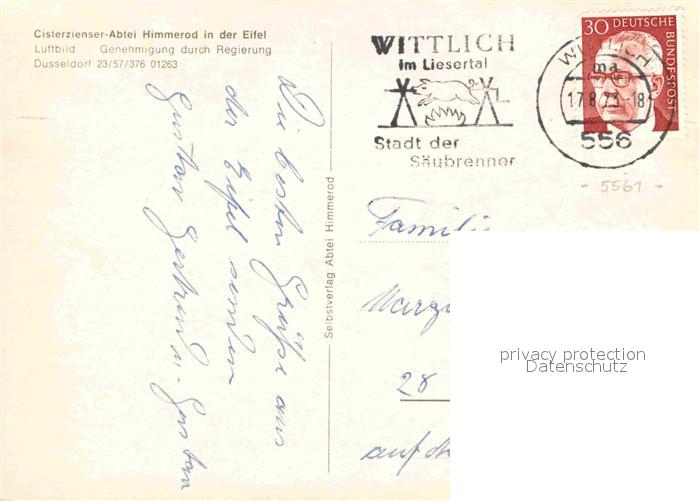 Cisterzienser-Abtei Himmerod in der Eifel
Luftbild Genehmigung durch Regierung
Düsseldorf 23/57/376 01263
WITTLICH
im Liesertal
Stadt der
Säubrenner
WITTLICH
ma
17.8.73-18
556
30 DEUTSCHE
BUNDESPOST
- 5561 -
Die besten Grüße aus
der Eifel senden
Gustav Gertrud u.
Selbstverlag Abtei Himmerod
Familie
28
auf
privacy protection
Datenschutz